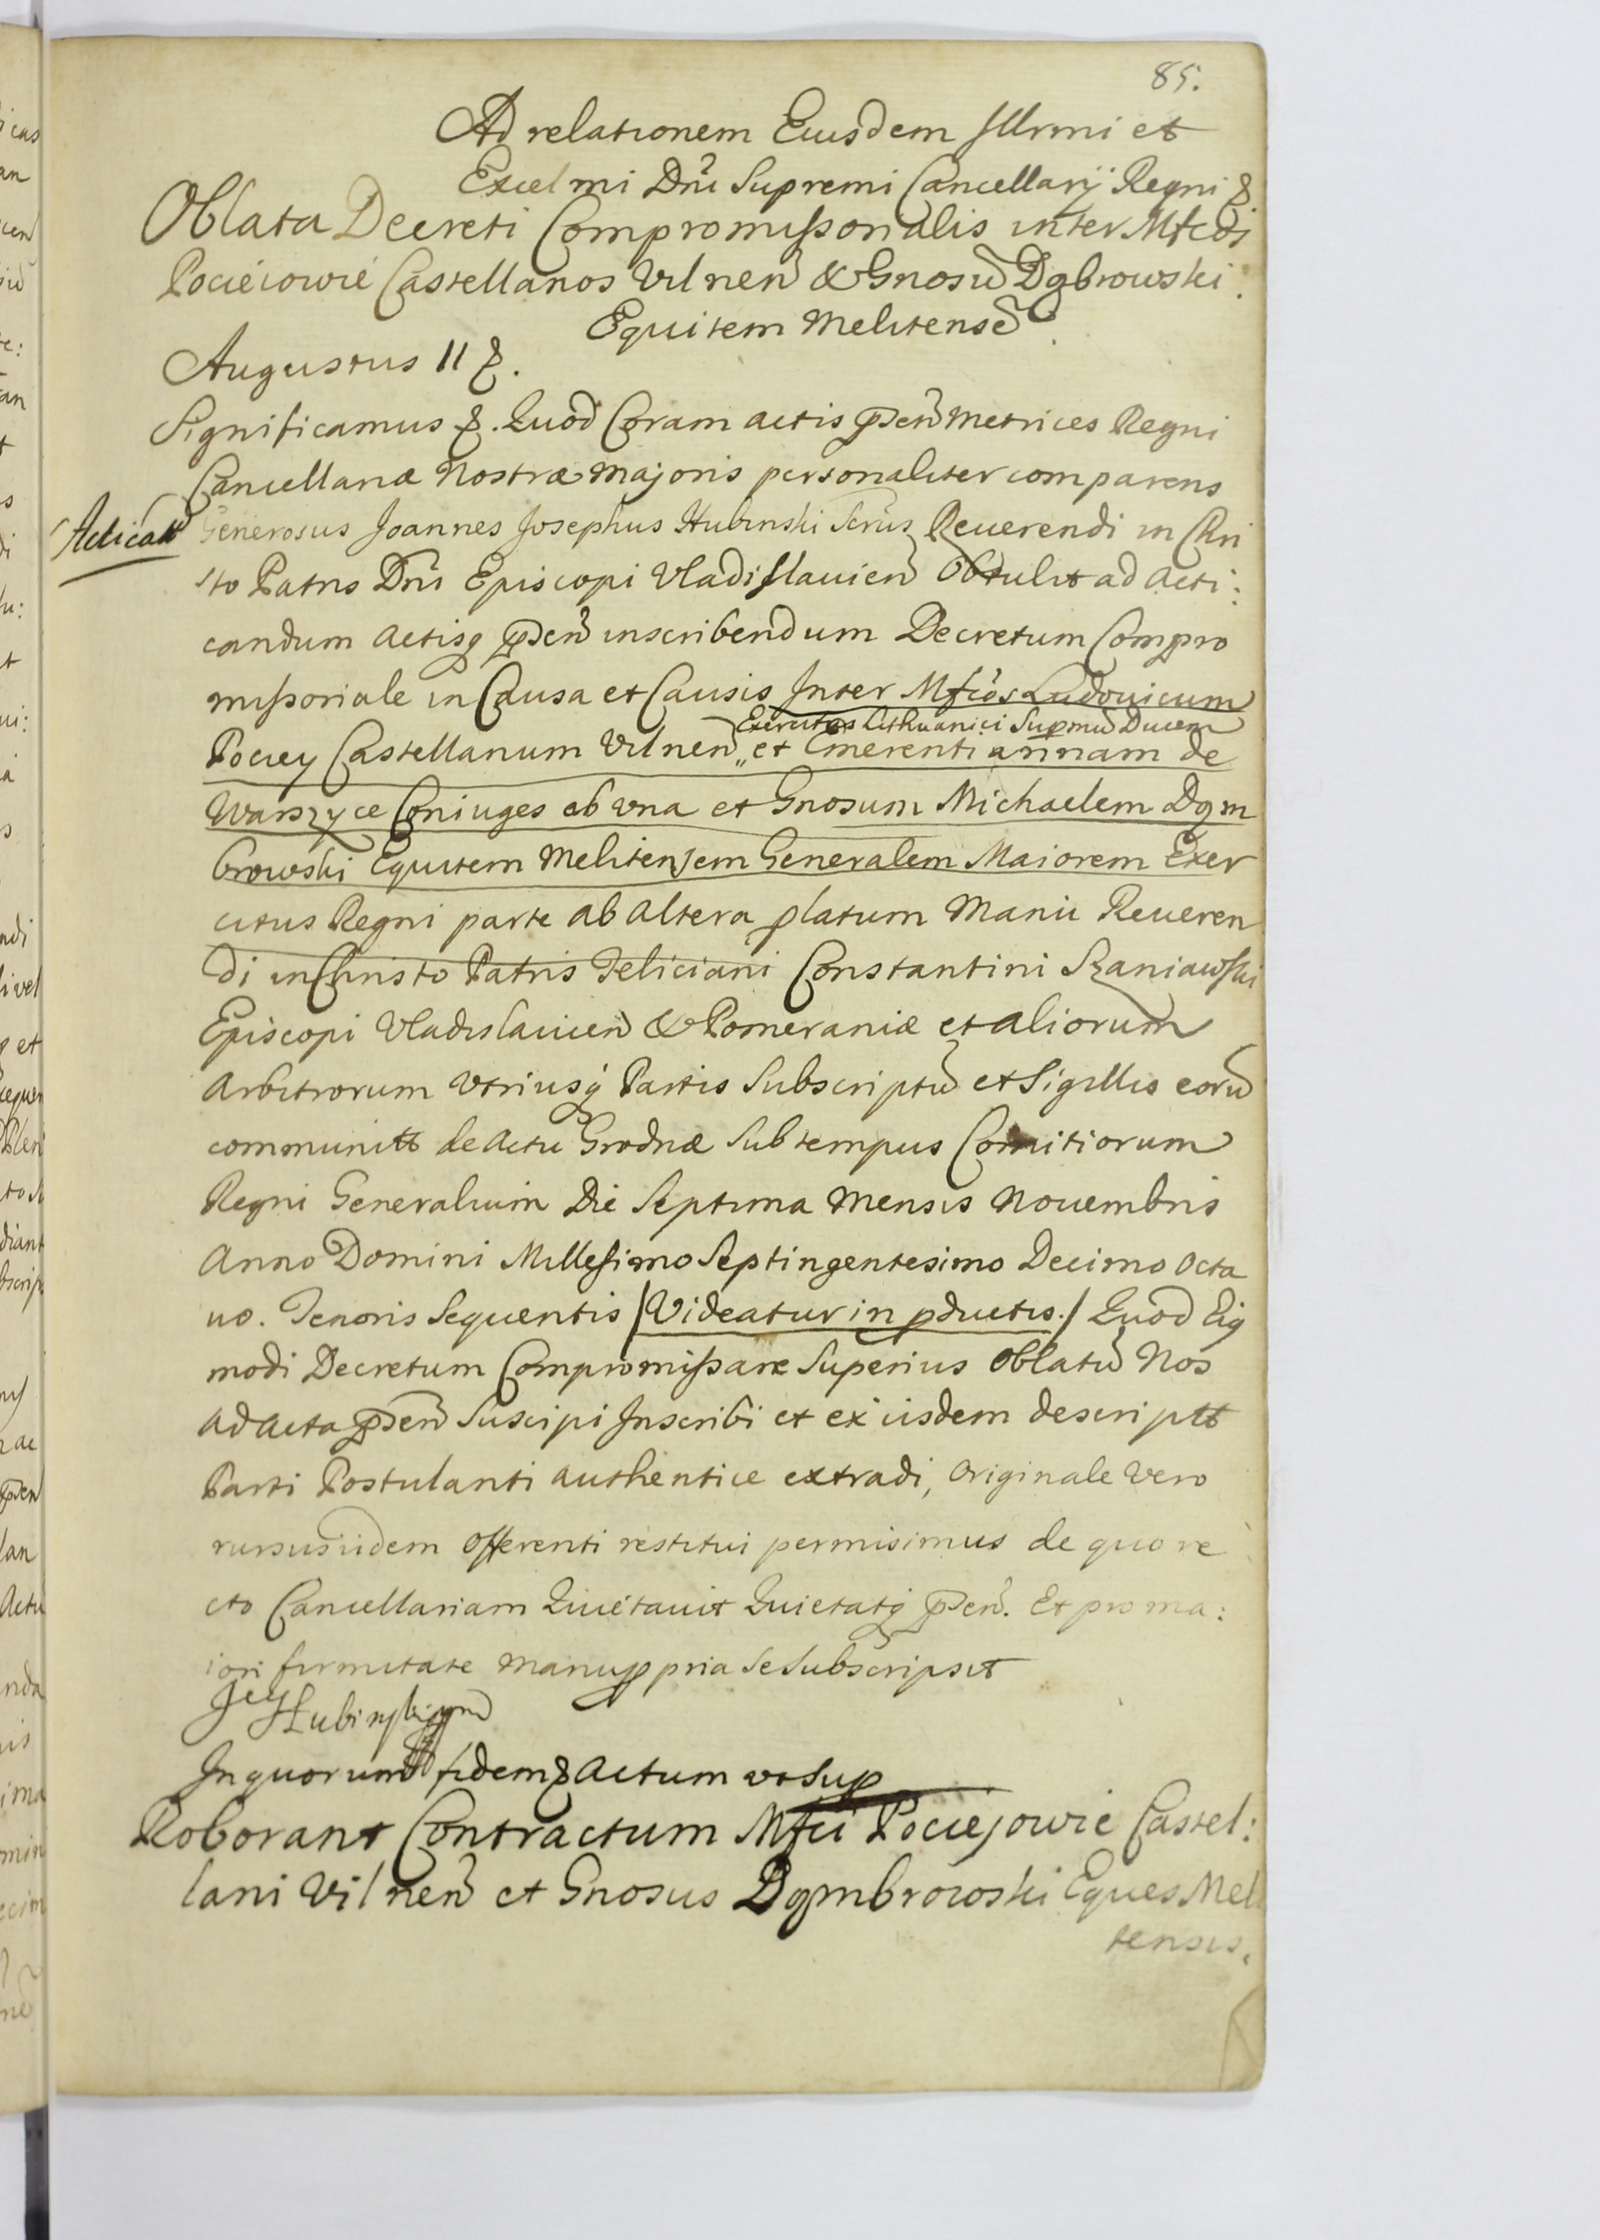 85.
Ad relationem Eiusdem Illrmi et
Excelmi Dni Supremi Cancellarij Regni &.
Oblata Decreti Compromissorialis inter Mfcos
Pociéiowié Castellanos Vilnen & Gnosu Dąbrowski
Equitem Melitense.
Augustus II &.
Significamus &. Quod Coram actis pnden Metrices Regni
Cancellariæ Nostræ Majoris personaliter comparens
Acticatt
Generosus Joannes Josephus Hubinski Scrus Reuerendi in Chri
sto Patris Dni Episcopi Vladislauien Obtulit ad acti:
candum actisq pnden inscribendum Decretum Compro
missoriale in Causa et Causis Inter Mfcos Ludouicum
Exercitus Lithuanici Supmu Ducem
Pociey Castellanum Vilnen,, et Emerentiannam de
Warszyce Coniuges ab vna et Gnosum Michaelem Dąm
browski Equitem Melitensem Generalem Maiorem Exer
citus Regni parte ab altera platum Manu Reueren
di in Christo Patris Feliciani Constantini Szaniawski
Episcopi Vladislauien & Pomeraniæ et aliorum
Arbitrorum Vtriusq Partis Subscriptu et Sigillis eoru
communitt de Actu Grodnæ Sub tempus Comitiorum
Regni Generalium Die Septima Mensis Nouembris
Anno Domini Millesimo Septingentesimo Decimo Octa
uo. Tenoris Sequentis /Videatur in pductis./ Quod Eiq
modi Decretum Compromissare Superius Oblatu Nos
ad Acta pnden Suscipi Inscribi et ex iisdem descriptt
Parti Postulanti authentice extradi, Originale vero
rursus iidem offerenti restitui permisimus de quo re
cto Cancellariam Quiétauit Quietatq pnden. Et pro ma:
iori firmitate manu ppria Se Subscripsit
In quorum fidem & Actum vt Sup
Roborant Contractum Mfci Pociejowie Castel:
lani Vilnen et Gnosus Dąmbrowski Eques Meli
tensis.